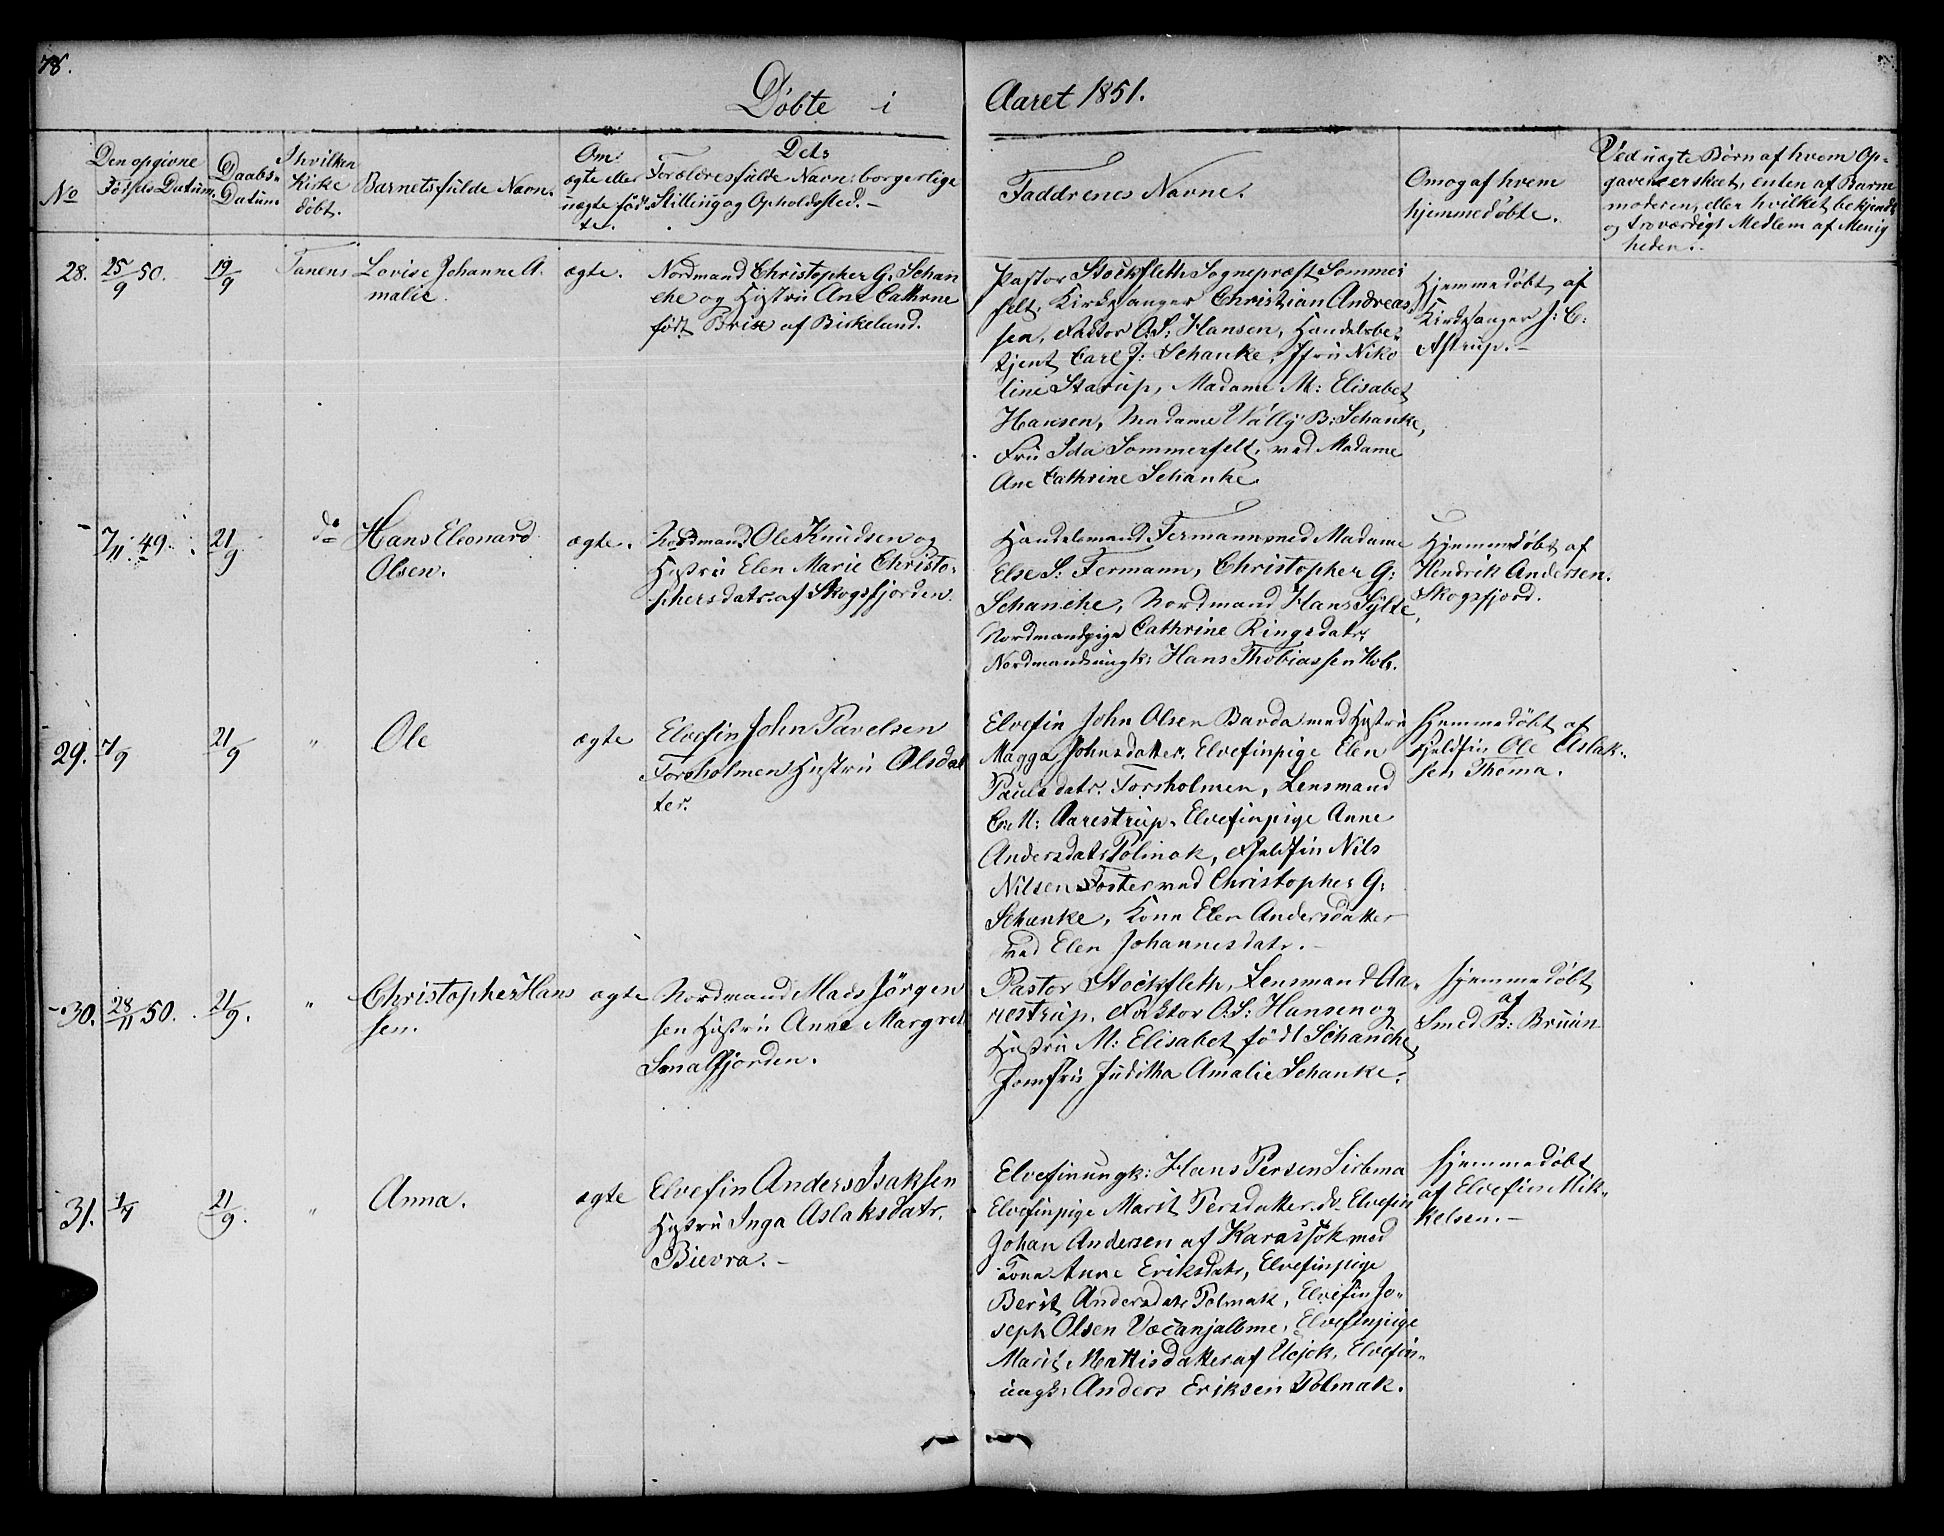 78.
Döbte i Aaret 1851.
No
Den opgivne
Födsels Datum.
Daabs-
Datum
I hvilken
Kirke
döbt.
Barnets fulde Navn.
Om
ægte eller
uægte föd-
te.
Dets
Forældres fulde Navn: borgerlige
Stilling og Opholdssted.-
Faddrenes Navne.
Om og af hvem
hjemmedöbte.
Ved uægte Börn af hvem Op-
gaven er skeet, enten af Barne
moderen, eller hvilket bekjendt
og troværdigt Medlem af Menig
heden.
28.
25/9 50.
19/9
Tanens
Lovise Johanne A.
malie.
ægte.
Nordmand Christopher G: Schan
che og Hustru Ane Cathrne
födt Brix af Birkelund.
Pastor Stockfleth Sognepræst Sommer
felt, Kirkesanger Christian Andreas
sen, Factor O:S: Hansen, Handelsbe-
tjent Carl J: Schanke, Jfru Niko
line Starup, Madame M: Elisabet
Hansen, Madame Wally B: Schanke,
Fru Ida Sommerfelt, med Madame
Ane Cathrine Schanke.
Hjemmedöbt af
Kirkesanger J: C:
Astrup.-
7/11. 49.
21/9
do
Hans Eleonard
Olsen.
ægte.
Nordmand Ole Knudsen og
Hustru Elen Marie Christo-
phersdatr. af Skogsfjorden.
Handelsmand Fermann med Madame
Else S: Fermann, Christopher G:
Schanche, Nordmand Hans Sylte,
Nordmandspige Cathrine Ringsdatr,
Nordmandsungk: Hans Thobiassen Hols.
Hjemmedöbt af
Hendrik Andersen.
Skogsfjord.
29.
7/9
21/9
"
Ole
ægte
Elvefin John Pavelsen
Forsholmen Hustru Olsdat
ter.
Elvefin John Olsen Bavda med Hustru
Magga Johnsdatter. Elvefinpige Elen
Paulsdatr. Forsholmen, Lensmand
C: M: Aarestrup. Elvefinpige Anne
Andersdatr Polmak, Fjeldfin Nils
Nilsen Foster med Christopher G:
Schanke, Kone Elen Andersdatter
ved Elen Johannesdatr.-
Hjemmedöbt af
Fjeldfin Ole Aslak-
sen Thoma.
30.
28/11 50.
21/9.
"
Christopher Hans
sen.
ægte
Nordmand Mads Jörgen
sen Hustru Anne Margret
Smalfjorden.
Pastor Stockfleth, Lensmand Aa-
restrup. Faktor O.S: Hansen og
Hustru M: Elisabet födt Schanche,
Jomfru Juditha Amalie Schanke.
Hjemmedöbt
af
Smed B: Bruun
31.
1/7
21/9.
"
Anna.
ægte
Elvefin Anders Isaksen
Hustru Inga Aslaksdatr.
Bievra.-
Elvefinungk: Hans Persen Sirbma
Elvefinpige Marit Persdatter do Elvefin
Johan Andersen af Karasjok med
Kone Anne Eriksdatr, Elvefinpige
Berit Andersdatr Polmak, Elvefin Jo-
seph Olsen Væcanjalbme, Elvefinpige
Marit Mattisdatter af Ucjok, Elvefin-
ungk: Anders Eriksen Polmak.
Hjemmedöbt
af Elvefin Mik-
kelsen.-